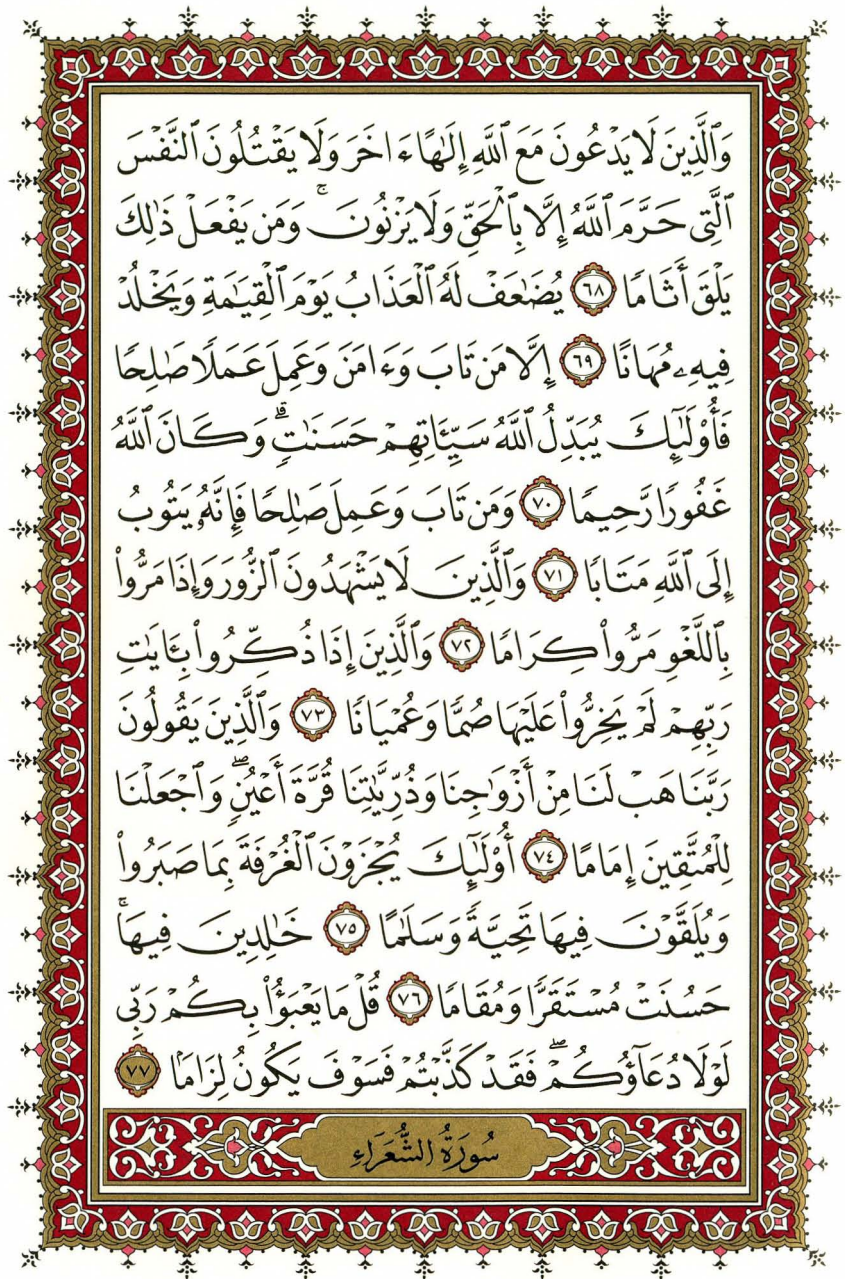 وَٱلَّذِينَ لَا يَدْعُونَ مَعَ ٱللَّهِ إِلَٰهًا ءَاخَرَ وَلَا يَقْتُلُونَ ٱلنَّفْسَ
ٱلَّتِى حَرَّمَ ٱللَّهُ إِلَّا بِٱلْحَقِّ وَلَا يَزْنُونَ ۚ وَمَن يَفْعَلْ ذَٰلِكَ
يَلْقَ أَثَامًا ٦٨ يُضَٰعَفْ لَهُ ٱلْعَذَابُ يَوْمَ ٱلْقِيَٰمَةِ وَيَخْلُدْ
فِيهِۦ مُهَانًا ٦٩ إِلَّا مَن تَابَ وَءَامَنَ وَعَمِلَ عَمَلًا صَٰلِحًا
فَأُو۟لَٰٓئِكَ يُبَدِّلُ ٱللَّهُ سَيِّـَٔاتِهِمْ حَسَنَٰتٍ ۗ وَكَانَ ٱللَّهُ
غَفُورًا رَّحِيمًا ٧٠ وَمَن تَابَ وَعَمِلَ صَٰلِحًا فَإِنَّهُۥ يَتُوبُ
إِلَى ٱللَّهِ مَتَابًا ٧١ وَٱلَّذِينَ لَا يَشْهَدُونَ ٱلزُّورَ وَإِذَا مَرُّوا۟
بِٱللَّغْوِ مَرُّوا۟ كِرَامًا ٧٢ وَٱلَّذِينَ إِذَا ذُكِّرُوا۟ بِـَٔايَٰتِ
رَبِّهِمْ لَمْ يَخِرُّوا۟ عَلَيْهَا صُمًّا وَعُمْيَانًا ٧٣ وَٱلَّذِينَ يَقُولُونَ
رَبَّنَا هَبْ لَنَا مِنْ أَزْوَٰجِنَا وَذُرِّيَّٰتِنَا قُرَّةَ أَعْيُنٍ ۖ وَٱجْعَلْنَا
لِلْمُتَّقِينَ إِمَامًا ٧٤ أُو۟لَٰٓئِكَ يُجْزَوْنَ ٱلْغُرْفَةَ بِمَا صَبَرُوا۟
وَيُلَقَّوْنَ فِيهَا تَحِيَّةً وَسَلَٰمًا ٧٥ خَٰلِدِينَ فِيهَا ۚ
حَسُنَتْ مُسْتَقَرًّا وَمُقَامًا ٧٦ قُلْ مَا يَعْبَؤُا۟ بِكُمْ رَبِّى
لَوْلَا دُعَآؤُكُمْ ۖ فَقَدْ كَذَّبْتُمْ فَسَوْفَ يَكُونُ لِزَامًا ٧٧
سُورَةُ الشُّعَرَاءِ